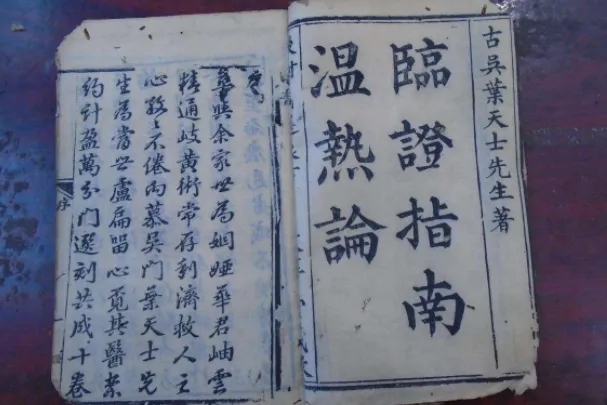 古吳葉天士先生著
臨證指南
溫熱論
序
與余家世為姻婭華君岫雲
精通岐黃術常存利濟救人之
心孜〻不倦而慕吳門葉天士先
生為當世盧扁留心覓其醫案
約計盈萬分門選刻共成十卷
序